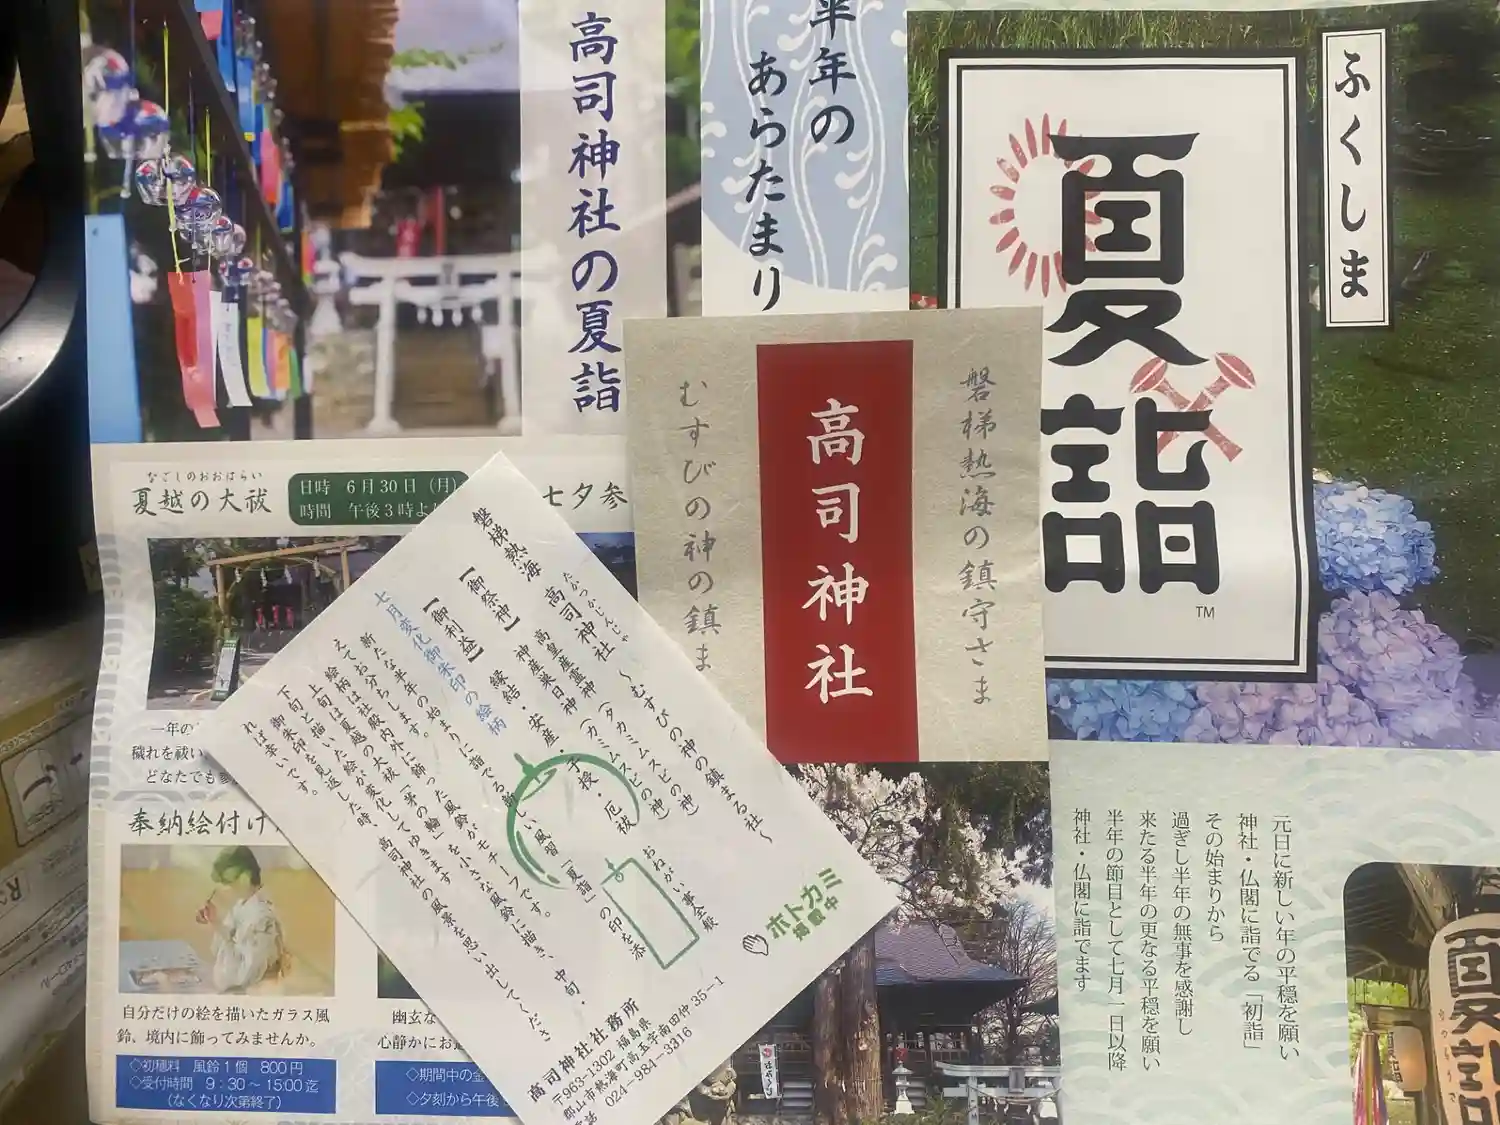 高司神社の夏詣
半年の
あらたまり
ふくしま
夏詣
TM
磐梯熱海の鎮守さま
高司神社
むすびの神の鎮ま
なごしのおおはらい
夏越の大祓
日時 6月30日(月)
時間 午後3時よ
七夕参
一年の
穢れを祓い
どなたでも
奉納絵付け
自分だけの絵を描いたガラス風
鈴、境内に飾ってみませんか。
◇初穂料 風鈴1個 800円
◇受付時間 9:30~15:00迄
(なくなり次第終了)
幽玄な
心静かにお
◇期間中の金
◇夕刻から午後
磐梯熱海 高司神社 ~むすびの神の鎮まる社~
たかつかじんじゃ
【御祭神】 高皇産霊神(タカミムスビの神)
神産巣日神(カミムスビの神)
【御利益】 縁結・安産・子授・厄祓 おねがい事全般
七月変化御朱印の絵柄
新たな半年の始まりに詣でる新しい風習「夏詣」の印を添
えてお分ちします。
絵柄は社殿内外に飾った風鈴がモチーフです。
上旬は夏越の大祓「茅の輪」を小さな風鈴に描き、中旬・
下旬と描いた絵が変化してゆきます
御朱印を見返した時、高司神社の風景を思い出してくださ
れば幸いです。
ホトカミ
掲載中
高司神社社務所
〒963-1302 福島県
郡山市熱海町高玉字南田仲35-1
電話 024-984-3316
元日に新しい年の平穏を願い
神社・仏閣に詣でる「初詣」
その始まりから
過ぎし半年の無事を感謝し
来たる半年の更なる平穏を願い
半年の節目として七月一日以降
神社・仏閣に詣でます
夏詣